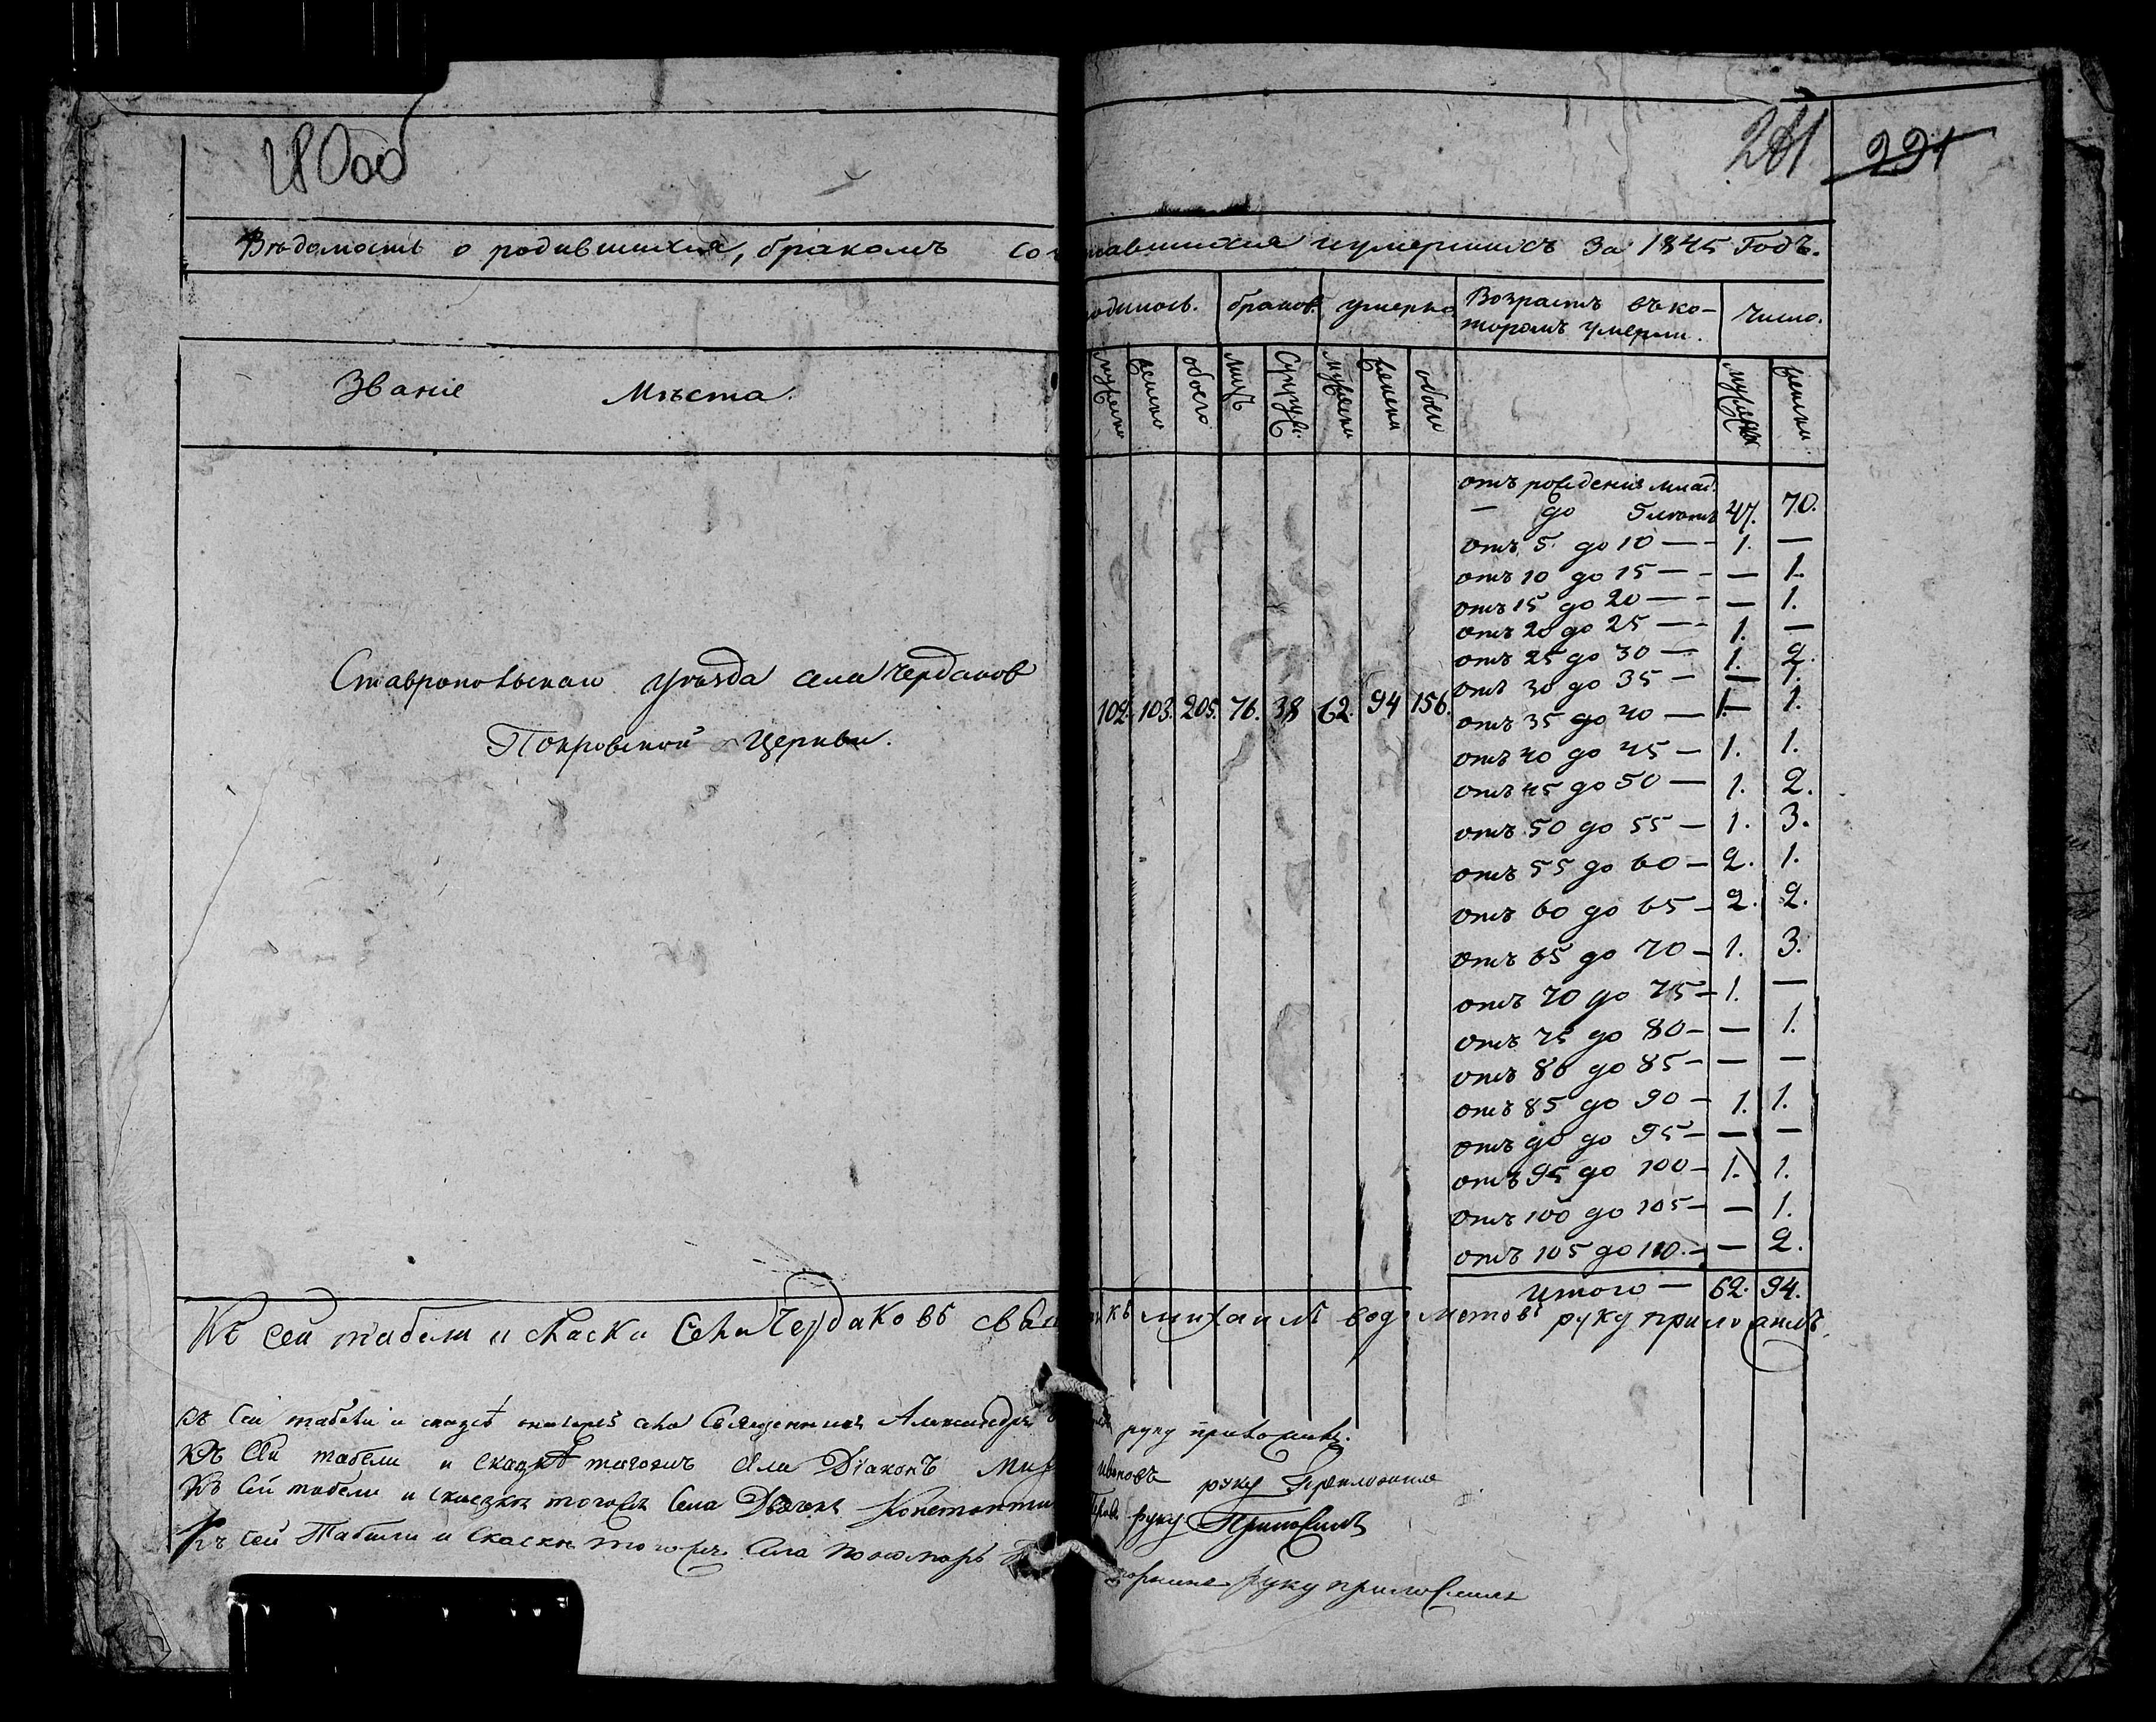 280об
281 221
Вѣдомость о родившихся, бракомъ со тавшихся и умершихъ за 1845 Годъ.
Званіе Мѣста.
одилось. браков. умерло. Возрастъ въ ко-
торомъ умерли. Число.
мужеска женска обоего мужъ Супруги. мужеска женска обоего мужеска женска
отъ рожденія млад.
— до 5 лѣтъ 47. 70.
отъ 5. до 10 — 1. —
отъ 10 до 15 — — 1.
отъ 15 до 20 — — 1.
отъ 20 до 25 — 1. —
отъ 25 до 30 — 1. 2.
отъ 30 до 35 — — 1.
Ставропольскаго уѣзда села Чердаков
Покровской Церкви.
102. 103. 205. 76. 38 62. 94 156.
отъ 35 до 40 — 1. 1.
отъ 40 до 45 — 1. 1.
отъ 45 до 50 — 1. 2.
отъ 50 до 55 — 1. 3.
отъ 55 до 60 — 2. 1.
отъ 60 до 65 — 2. 2.
отъ 65 до 70 — 1. 3.
отъ 70 до 75 — 1. —
отъ 75 до 80 — — 1.
отъ 80 до 85 — — —
отъ 85 до 90 — 1. 1.
отъ 90 до 95 — — —
отъ 95 до 100 — 1. 1.
отъ 100 до 105 — — 1.
отъ 105 до 110. — — 2.
Итого — 62. 94.
Къ сей табели и скаски Села Чердаковъ свя икъ михаилъ руку приложилъ.
Къ сей табели и сказкѣ села Священникъ Александръ руку приложилъ.
Къ сей табели и сказкѣ тогожъ села Діаконъ ивановъ руку приложилъ
Къ сей табели и сказкѣ тогожъ Села Дьячекъ Константи руку Приложилъ
Къ сей Табели и Скаскѣ тогожъ Села пономарь руку приложилъ